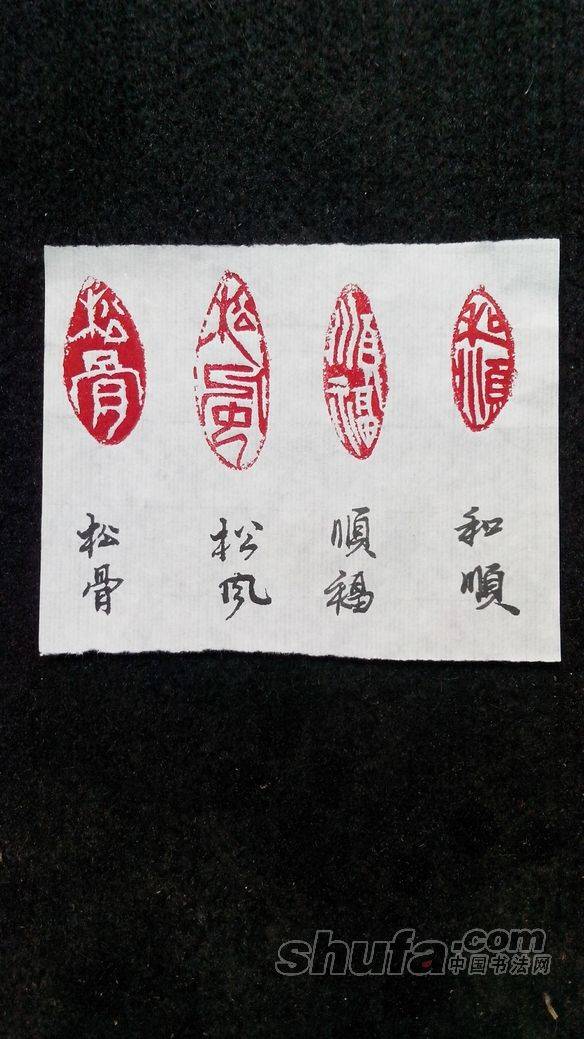 和順
順福
松風
松骨
和順
順福
松风
松骨
shufa.com
中国书法网